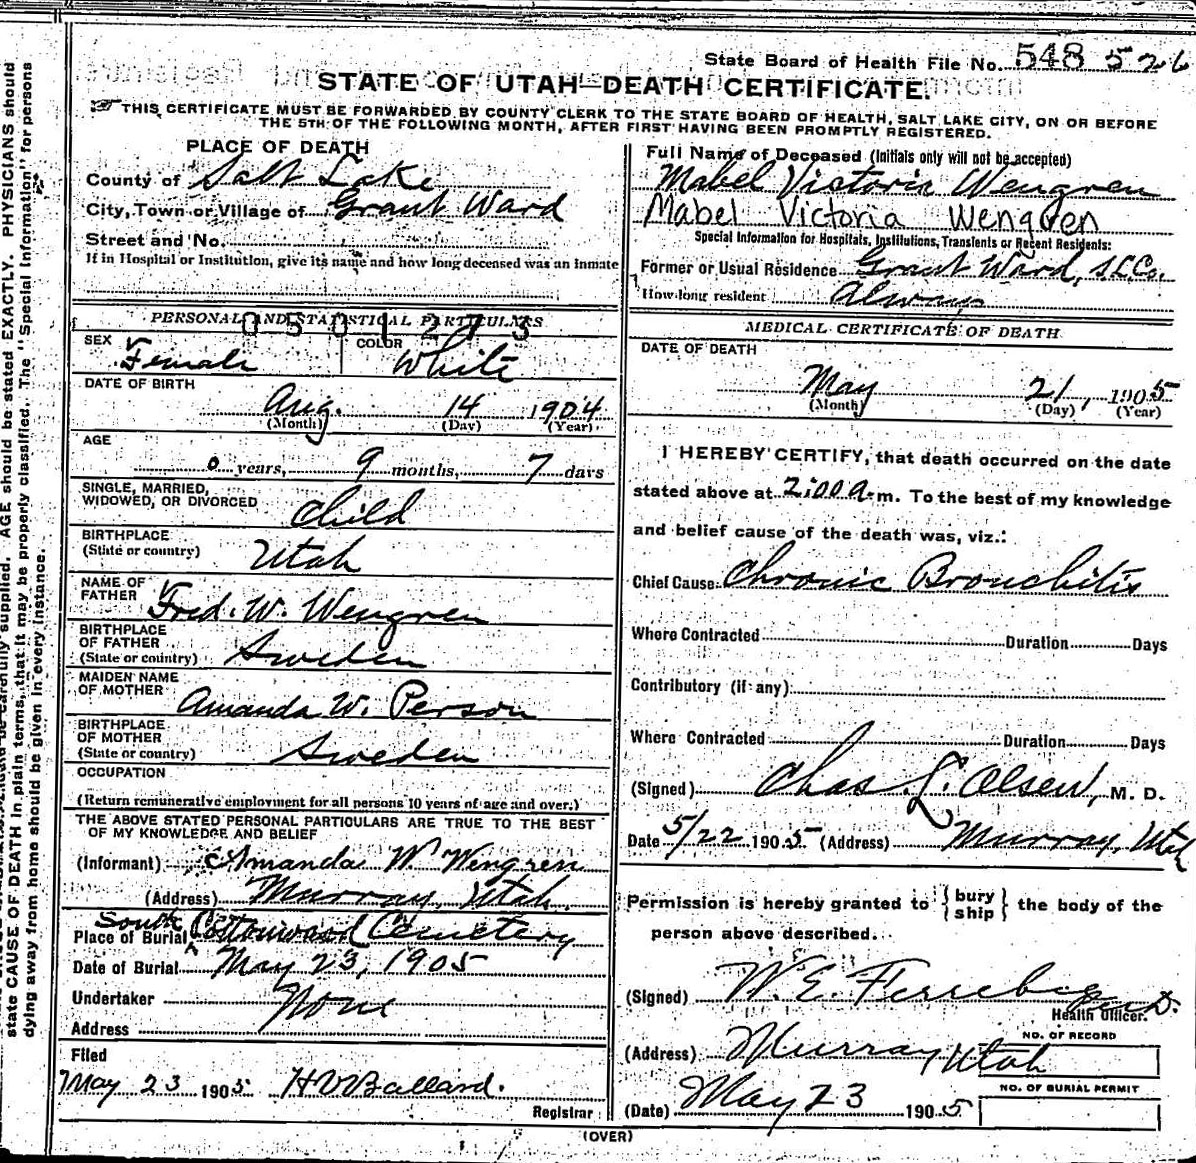 State Board of Health File No. 548 526
STATE OF UTAH—DEATH CERTIFICATE.
THIS CERTIFICATE MUST BE FORWARDED BY COUNTY CLERK TO THE STATE BOARD OF HEALTH, SALT LAKE CITY, ON OR BEFORE
THE 5TH OF THE FOLLOWING MONTH, AFTER FIRST HAVING BEEN PROMPTLY REGISTERED.
PLACE OF DEATH
County of Salt Lake
City, Town or Village of Grant Ward
Street and No.
If in Hospital or Institution, give its name and how long deceased was an inmate
PERSONAL AND STATISTICAL PARTICULARS
0501273
SEX Female COLOR White
DATE OF BIRTH
Aug. 14 1904
(Month) (Day) (Year)
AGE
0 years, 9 months, 7 days
SINGLE, MARRIED,
WIDOWED, OR DIVORCED Child
BIRTHPLACE
(State or country) Utah
NAME OF
FATHER Fred. W. Wengren
BIRTHPLACE
OF FATHER
(State or country) Sweden
MAIDEN NAME
OF MOTHER Amanda W. Person
BIRTHPLACE
OF MOTHER
(State or country) Sweden
OCCUPATION
(Return remunerative employment for all persons 10 years of age and over.)
THE ABOVE STATED PERSONAL PARTICULARS ARE TRUE TO THE BEST
OF MY KNOWLEDGE AND BELIEF
(Informant) Amanda W. Wengren
(Address) Murray, Utah.
Place of Burial South Cottonwood Cemetery
Date of Burial May 23, 1905
Undertaker None
Address
Filed
May 23 1905 H V Ballard.
Registrar
Full Name of Deceased (Initials only will not be accepted)
Mabel Victoria Wengren
Mabel Victoria Wengren
Special Information for Hospitals, Institutions, Transients or Recent Residents:
Former or Usual Residence Grant Ward, S.L.Co.
How long resident Always
MEDICAL CERTIFICATE OF DEATH
DATE OF DEATH
May 21, 1905
(Month) (Day) (Year)
I HEREBY CERTIFY, that death occurred on the date
stated above at 2:00 a. m. To the best of my knowledge
and belief cause of the death was, viz.:
Chief Cause Chronic Bronchitis
Where Contracted Duration Days
Contributory (if any)
Where Contracted Duration Days
(Signed) Chas. L. Olsen, M. D.
Date 5/22 1905 (Address) Murray, Utah
Permission is hereby granted to { bury ship } the body of the
person above described.
(Signed) W. E.
Health Officer.
(Address) Murray Utah
NO. OF RECORD
(Date) May 23 1905
NO. OF BURIAL PERMIT
(OVER)
state CAUSE OF DEATH in plain terms, that it may be properly classified. The "Special Information" for persons
dying away from home should be given in every instance.
AGE should be stated EXACTLY. PHYSICIANS should